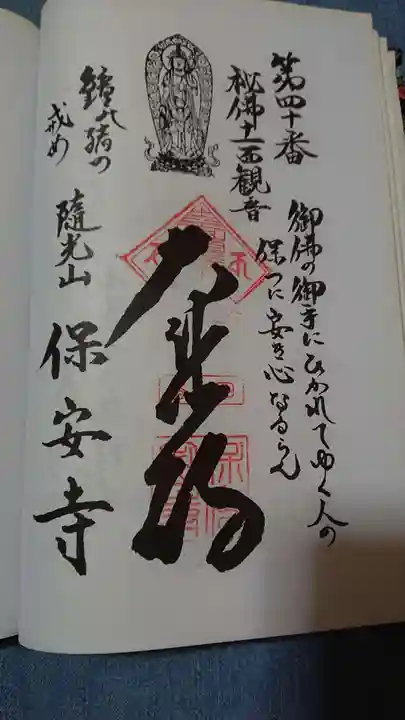 第四十番
秘佛十一面観音
御佛の御手にひかれてゆく人の
保つに安き心なるらん
大悲殿
鐘の緒の
戒め
隨光山
保安寺